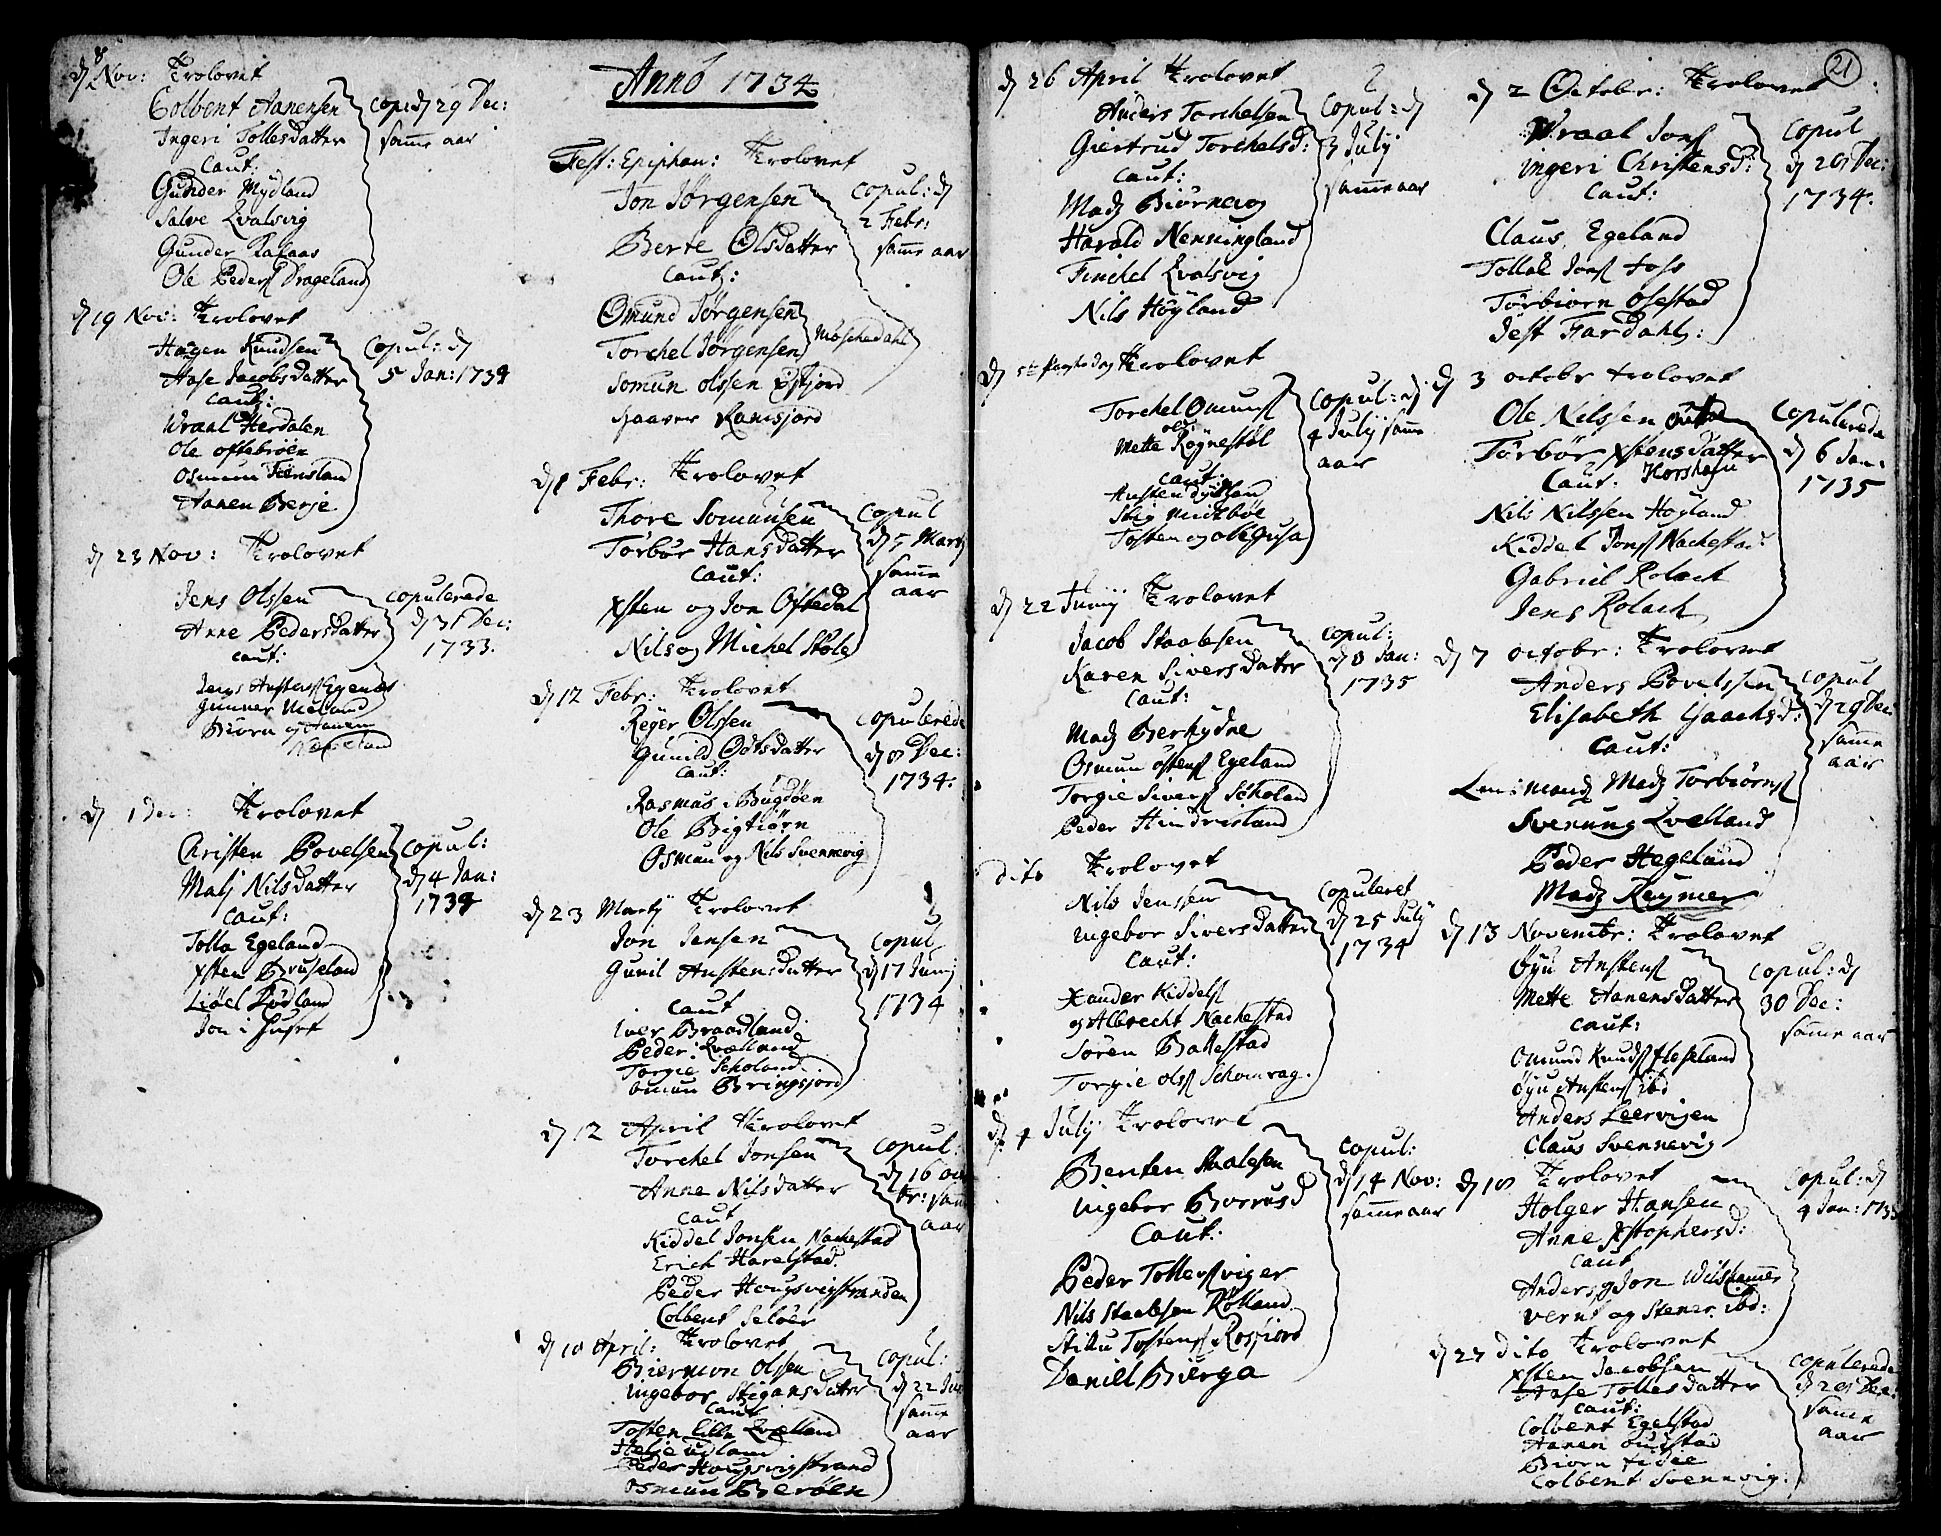 d 8 Nov: Trolovet
Colbent Aanensen
Ingeri Tollesdatter
Caut:
Gunder Mydland
Salve Qvalsvig
Gunder
Ole Peders Drageland
cop: d 29 Dec:
samme aar
d 19 Nov: Trolovet
Hagen Knudsen
Aase Jacobsdatter
Caut:
Wraal Herdalen
Ole oftebröen
Osmun
Aanen Berje
Copul: d
5 Jan: 1734
d 23 Nov: Trolovet
Jens Olssen
Anne Pedersdatter
caut:
Jens Austens Egenes
Gunner
Biörn og Aanen
copulerede
d 31 Dec:
1733.
d 1 Dec: Trolovet
Christen Povelsen
Malj Nilsdatter
Caut:
Tolla Egeland
Xsten Bruseland
Liöel Rödland
Jon i Huset
Copul:
d 4 Jan:
1734
Anno 1734
Fest: Epiphan: Trolovet
Jon Jörgensen
Berte Olsdatter
Caut:
Omund Jörgensen
Torchel Jörgensen
Somun olssen
Haaver Ramsfjord
Moschedahl
copul: d
2 Febr:
samme aar
d 1 Febr: Trolovet
Thore Somunsen
Torbor Hansdatter
Caut:
Xsten og Jon Oftedal
Nils og Michel Skole
Copul
d 5 Martj
samme
aar
d 12 Febr: Trolovet
Reyer Olssen
Gunild Oddsdatter
Caut:
Rasmus i Bugdöen
Ole Bigtiörn
Osmun og Nils Svennevig
Copulerede
d 8 Dec:
1734.
d 23 Martj Trolovet
Jon Jensen
Gunil Austensdatter
Caut
Iver Braadland
Peder Qvelland
Torgie Scholand
omun Bringsfjord
Copul
d 17 Junij
1734
d 12 April Trolovet
Torchel Jonsen
Anne Nilsdatter
Caut
Kiddel Jonsen Nachestad
Erich Harelstad
Peder Hougsvigstranden
Colbent Selöer
copul:
d 16 oct
br: sam
aar
d 18 April: Trolovet
Biermon Olssen
Ingebor Stigansdatter
Caut
Tosten lille Qvelland
Helje udland
Peder Hougsvigstrand
Osmun Beröen
Copul:
d 22 Jun
samme
aar
21
d 26 April Trolovet
Anders Torchelsen
Giertrud Torchelsd:
Caut:
Madz Biörnevog
Harald Nenningland
Finckel Qvalsvig
Nils Höyland
Copul: d
3 Julij
samme aar
d Trolovet
Torchel Omuns
Mette Röynestöl
Caut:
Austen
Stig Midtböe
Tosten og ole Gusa
Copul: d
4 Julij samme
aar
d 22 Junij Trolovet
Jacob Staalesen
Karen Siversdatter
Caut:
Madz Berhydne
Osmun östens Egeland
Torgie Sivers Scholand
Peder
copul:
d 8 Jan:
1735
dito Trolovet
Nils Jenssen
Ingebor Siversdatter
Caut:
Xander Kiddels
og Albrecht Nachestad
Sören Ballestad
Torgie ols Schomrag.
Copuleret
d 25 Julij
1734
d 4 Julij Trolovet
Benten Staalesen
Ingebor Borrusd
Caut:
Peder Tollevsviger
Nils Staalesen Rölland
Tostens Rosfiord
Daniel Bierga
Copul:
d 14 Nov:
samme aar
d 2 Octobr: Trolovet
Wraal Jons
Ingeri Christensd:
Caut:
Claus Egeland
Tollak Jons foss
Törbiorn Osestad
Jest Fardahl:
Copul
d 28 Dec:
1734.
d 3 octobr trolovet
Ole Nilssen
Törbör Xstensdatter
Caut: Horshejn
Nils Nilssen Höyland
Kiddel Jons Nachestad
Gabriel Rolack
Jens Rolach
Copulerede
d 6 Jan:
1735
d 7 octobr: Trolovet
Anders Povelssen
Elisabeth Isaachsd:
Caut:
Lensmand Madz Törbiörns
Svenung Qvelland
Peder Hegeland
Madz Reymer
copul
d 29 Dec:
samme
aar
d 13 Novembr: Trolovet
Öyu Austens
Mette Aanensdatter
Caut:
Omund Knuds floseland
Öyu Austens ibd
Anders Leervigen
Claus Svennevig
copul: d
30 Dec:
samme aar
d 18 Trolovet
Holger Hansen
Anne Xstophersd:
Caut
Anders og Jon Wilskammer
Vernt og Stener ibd:
Copul: d
4 Jan: 1735
d 27 dito Trolovet
Xsten Jacobsen
Aase Tollesdatter
caut:
Colbent Egelstad
Aanen
Biorn
Colbent Svennvig:
copulerede
d 28 Dec:
samme
aar